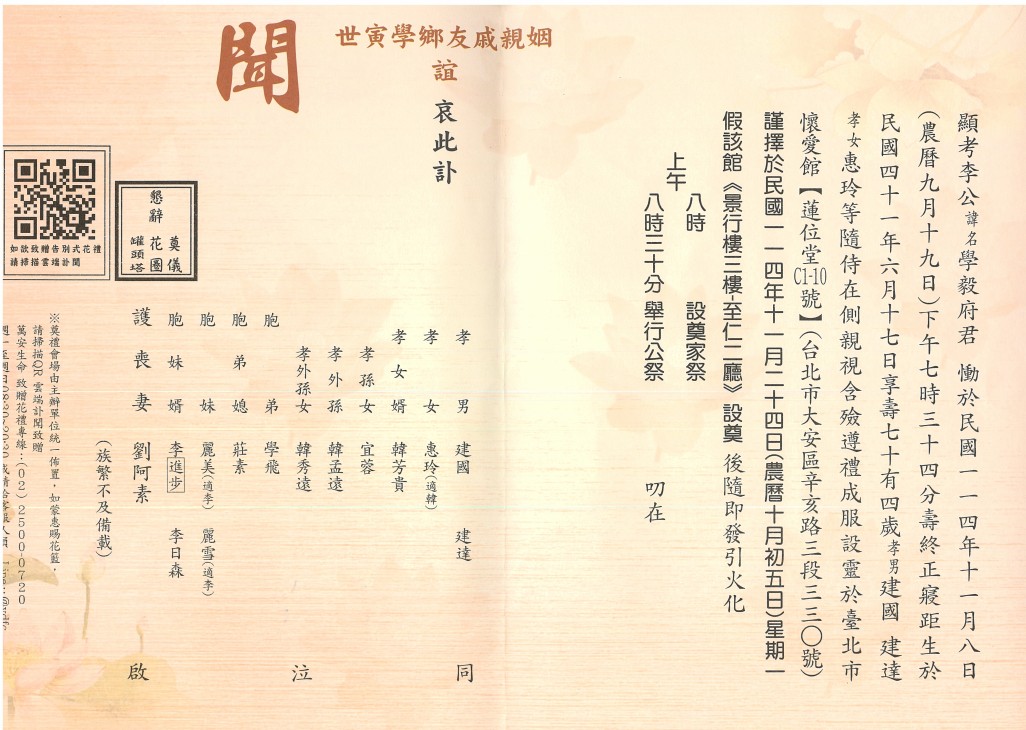 顯考李公諱名學毅府君 慟於民國一一四年十一月八日
(農曆九月十九日)下午七時三十四分壽終正寢距生於
民國四十一年六月十七日享壽七十有四歲孝男建國 建達
孝女惠玲等隨侍在側親視含殮遵禮成服設靈於臺北市
懷愛館【蓮位堂C1-10號】(台北市大安區辛亥路三段三三〇號)
謹擇於民國一一四年十一月二十四日(農曆十月初五日)星期一
假該館《景行樓三樓-至仁二廳》設奠 後隨即發引火化
上午
八時 設奠家祭
八時三十分 舉行公祭 叨在
世寅學鄉友戚親姻
誼 哀此訃
聞
孝男 建國 建達 同
孝女 惠玲(適韓)
孝女婿 韓芳貴
孝孫女 宜蓉
孝外孫 韓孟遠
孝外孫女 韓秀遠 泣
胞弟 學飛
胞弟媳 莊素
胞妹 麗美(適李) 麗雪(適李)
胞妹婿 李進步 李日森
護喪妻 劉阿素 啟
(族繁不及備載)
懇辭 奠儀 花圈 罐頭塔
如欲致贈告別式花禮
請掃描雲端訃聞
※奠禮會場由主辦單位統一佈置，如蒙惠賜花籃，
請掃描QR 雲端訃聞致贈
萬安生命 致贈花禮專線：(02)2500-0720